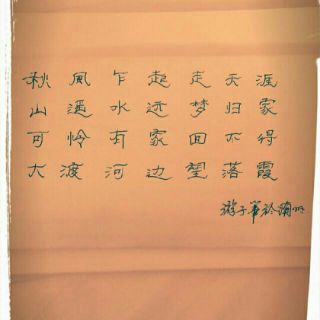 秋風乍起走天涯
山遥水远梦归家
可怜有家回不得
大渡河边望落霞
游子筆於